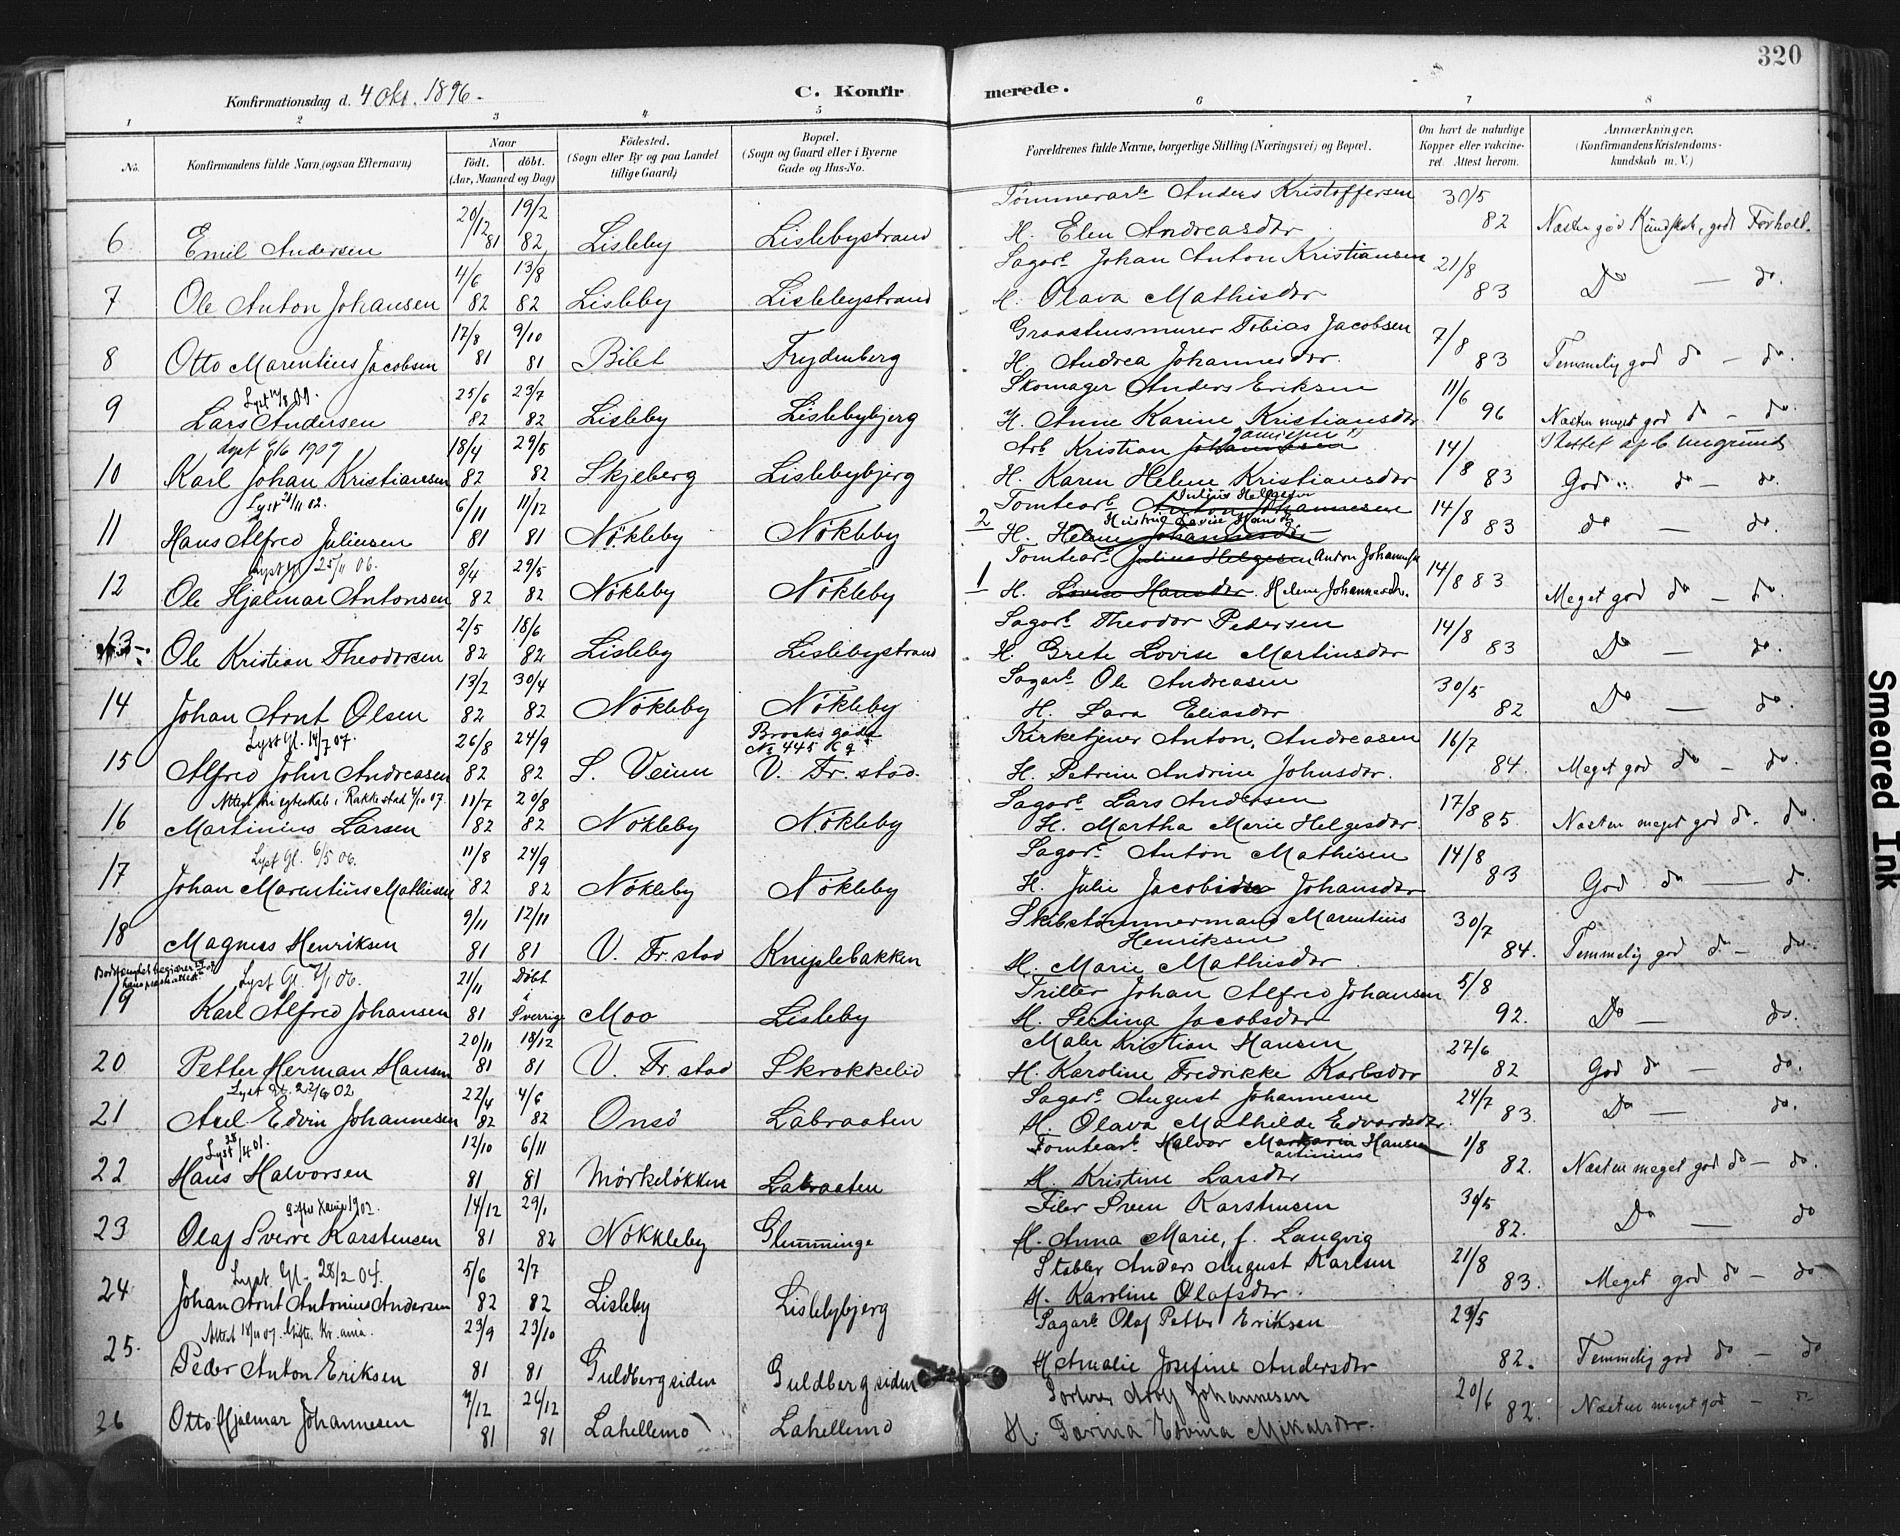 320
Konfirmationsdag d. 4 Okt. 1896.
C. Konfirmerede.
1 2 3 4 5 6 7 8
No. Konfirmandens fulde Navn (ogsaa Efternavn) Naar født. døbt. (Aar, Maaned og Dag) Fødested. (Sogn eller By og paa Landet tillige Gaard) Bopæl. (Sogn og Gaard eller i Byerne Gade og Hus-No. Forældrenes fulde Navne, borgerlige Stilling (Næringsvei) og Bopæl. Om havt de naturlige Kopper eller vakcineret. Attest herom. Anmærkninger. (Konfirmandens Kristendomskundskab m. V.)
6 Emil Andersen 20/12 81 19/2 82 Lisleby Lislebystrand Tømmerarb. Anders Kristoffersen
H. Elen Andreasdtr 30/5 82 Næsten god Kundskab, godt Forhold.
7 Ole Anton Johansen 4/6 82 13/8 82 Lisleby Lislebystrand Sagarb. Johan Anton Kristiansen
H. Olava Mathisdtr 21/8 83 Do — do.
8 Otto Marentius Jacobsen 17/8 81 9/10 81 Bilet Frydenberg Graastensmurer Tobias Jacobsen
H. Andrea Johannesdtr. 7/8 83 Temmelig god do — do.
9 Lars Andersen 25/6 82 23/7 82 Lisleby Lislebybjerg Skomager Anders Eriksen
H. Anne Karine Kristiansdtr 11/6 96 Næsten meget god do — do.
lyst 6/6 1909
10 Karl Johan Kristiansen 18/4 82 29/5 82 Skjeberg Lislebybjerg Arb. Kristian
H. Karen Helene Kristiansdtr 14/8 83 God do — do.
Lyst 21/11 02.
11 Hans Alfred Juliusen 6/11 81 11/12 81 Nökleby Nökleby Tomtearb. Anton Johannesen Julius Helgesen
2 H. Helene Johannesdtr Lovise Hansdtr. 14/8 83 do — do.
Lyst Gl. 25/11 06.
12 Ole Hjalmar Antonsen 8/4 82 29/5 82 Nökleby Nökleby Tomtearb. Julius Helgesen Anton Johannesen
1 H. Lovise Hansdtr. Helene Johannesdtr. 14/8 83 Meget god do — do.
13 Ole Kristian Theodorsen 2/5 82 18/6 82 Lisleby Lislebystrand Sagarb. Theodor Pedersen
H. Grete Lovise Martinsdtr 14/8 83 Do — do.
14 Johan Arnt Olsen 13/2 82 30/4 82 Nökleby Nökleby Sagarb. Ole Andreasen
H. Lara Eliasdtr 30/5 82 Do — do.
Lyst Gl. 14/7 07.
15 Alfred John Andreasen 26/8 82 24/9 82 S. Veium Brocks gade No 445 V. Fr.stad. Kirketjener Anton Andreasen
H. Petrine Andrine Johnsdtr. 16/7 84. Meget god do — do.
Attest til egteskab i Rakkestad 4/10 07.
16 Martinius Larsen 11/7 82 20/8 82 Nökleby Nökleby Sagarb. Lars Andersen
H. Martha Marie Helgesdtr. 17/8 85. Næsten meget god do. do.
Lyst Gl. 6/5 06.
17 Johan Marentius Mathisen 11/8 82 24/9 82 Nökleby Nökleby Sagarb. Anton Mathisen
H. Julie Jacobine Johansdtr 14/8 83 God do — do.
18 Magnus Henriksen 9/11 81 12/11 81 V. Fr.stad Kniplebakken Skibstømmermand Marentius Henriksen
H. Marie Mathisdtr 30/7 84. Temmelig god do — do.
Lyst Gl. 7/1 06.
19 Karl Alfred Johansen 21/11 81 Døbt i Sverrig Moo Lisleby Triller Johan Alfred Johansen
H. Pedina Jacobsdtr 5/8 92. Do — do.
20 Petter Herman Hansen 20/11 81 18/12 81 V. Fr.stad Skrokkelid Maler Kristian Hansen
H. Karoline Fredrikke Karlsdtr 27/6 82 God do — do.
Lyst Gl. 22/6 02
21 Axel Edvin Johannesen 22/4 82 4/6 82 Onsö Labraaten Sagarb. August Johannesen
H. Olava Mathilde Edvardsdtr. 24/7 83. Do — do.
Lyst 28/4 01.
22 Hans Halvorsen 12/10 81 6/11 81 Mörkelökken Labraaten Tomtearb. Halvor Martinius Hansen
H. Kristine Larsdtr 1/8 82. Næsten meget god do — do.
23 Olaf Sverre Karstensen 14/12 81 29/1 82 Nökkleby Glemminge Filer Sven Karstensen
H. Anna Marie, f. Langvig 30/5 82. Do — do
Lyst Gl. 28/2 04.
24 Johan Arnt Antonius Andersen 5/6 82 2/7 82 Lisleby Lislebybjerg Stabler Anders August Karlsen
H. Karoline Olafsdtr. 21/8 83. Meget god do — do
Attest 18/11 07. Gifte. Kr.ania.
25. Peder Anton Eriksen 23/9 81 23/10 81 Guldbergsiden Guldbergsiden Sagarb. Olaf Petter Eriksen
H. Amalie Josefine Andersdtr 29/5 82. Temmelig god do — do
26 Otto Hjalmar Johannesen 7/12 81 26/12 81 Lahellemo Lahellemo Sorterer Adolf Johannesen
H. Tærina Edvina Mikalsdtr. 20/6 82. Næsten meget god — do
Smeared Ink